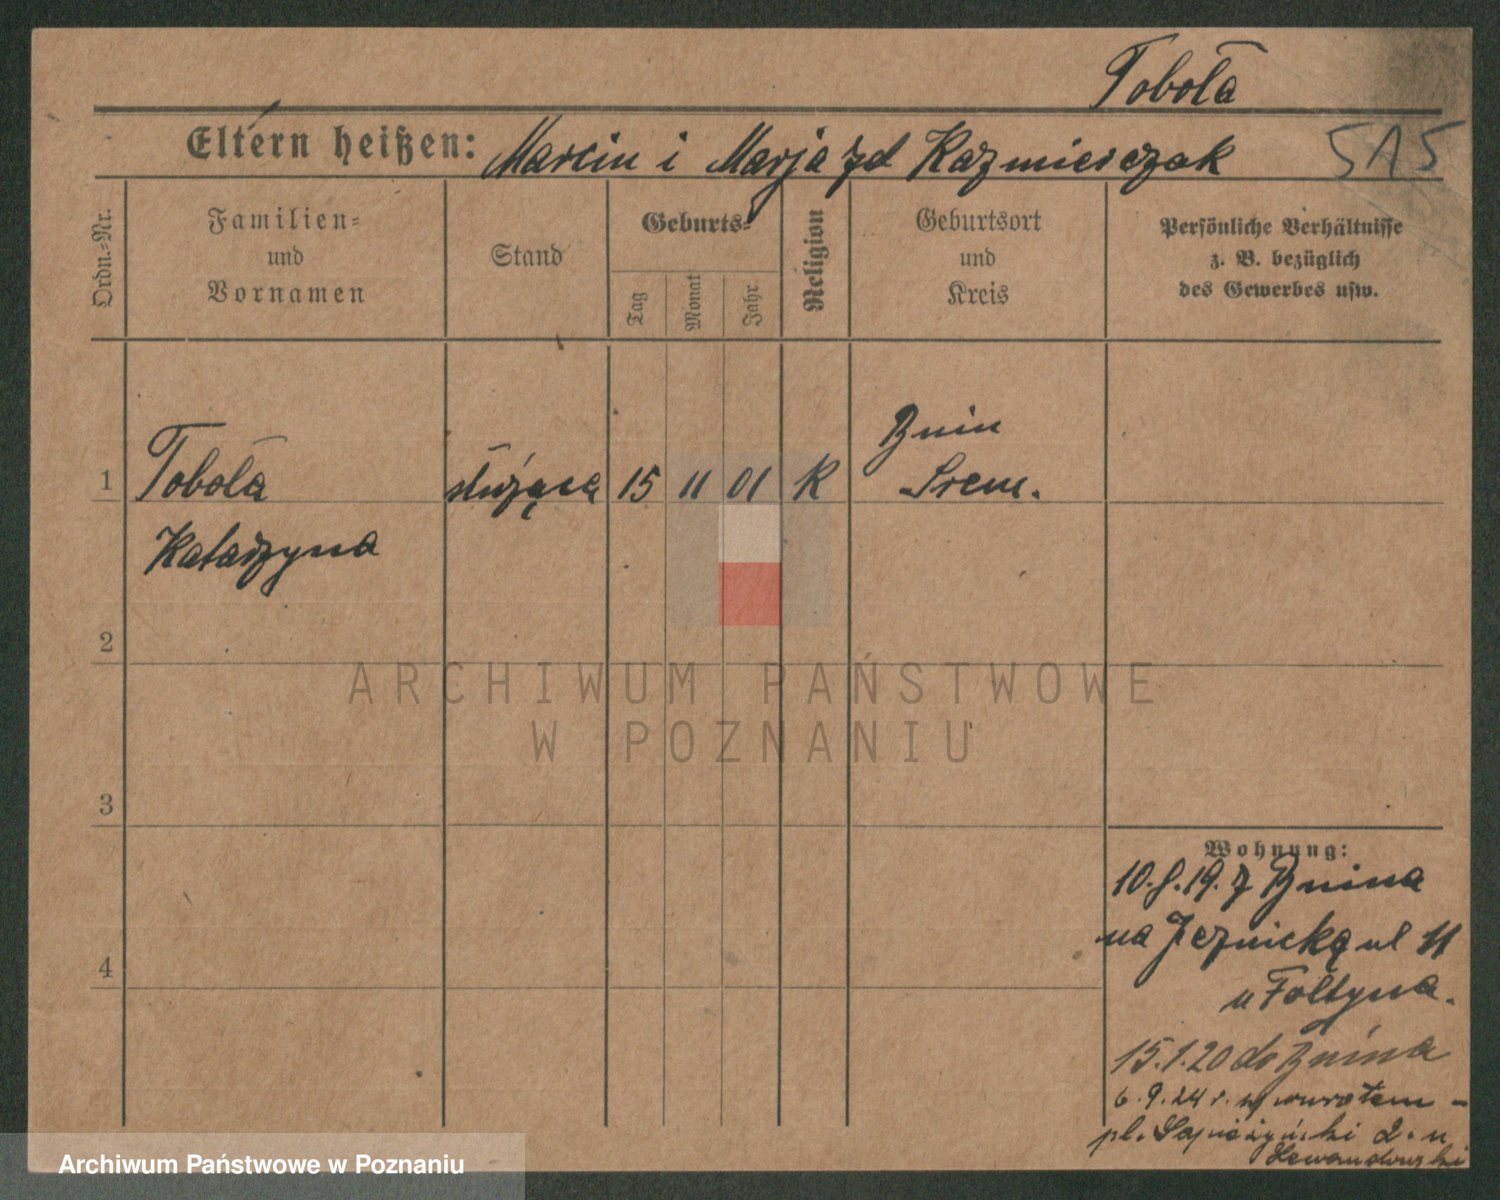 Toboła
Eltern heißen: Marcin i Marja zd Kaźmierczak
515
Ordn.-Nr.
Familien-
und
Vornamen
Stand
Geburts-
Tag
Monat
Jahr
Religion
Geburtsort
und
Kreis
Persönliche Verhältnisse
z. B. bezüglich
des Gewerbes usw.
1
Toboła
Katarzyna
służąca
15
11
01
K
Bnin
Srem.
2
ARCHIWUM PAŃSTWOWE
W POZNANIU
3
4
Wohnung:
10.8.19. z Bnina
na Jeznicką ul 11
u Foltyna.
15.1.20 do Bnina
6.9.24 r. z
pl. Sapieżyński 2. u
Lewandowski
Archiwum Państwowe w Poznaniu